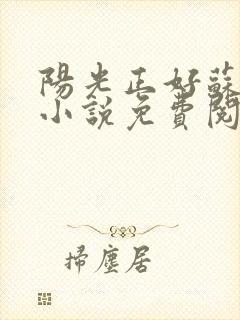 陽光正好蘇
小說免費閱
掃塵居